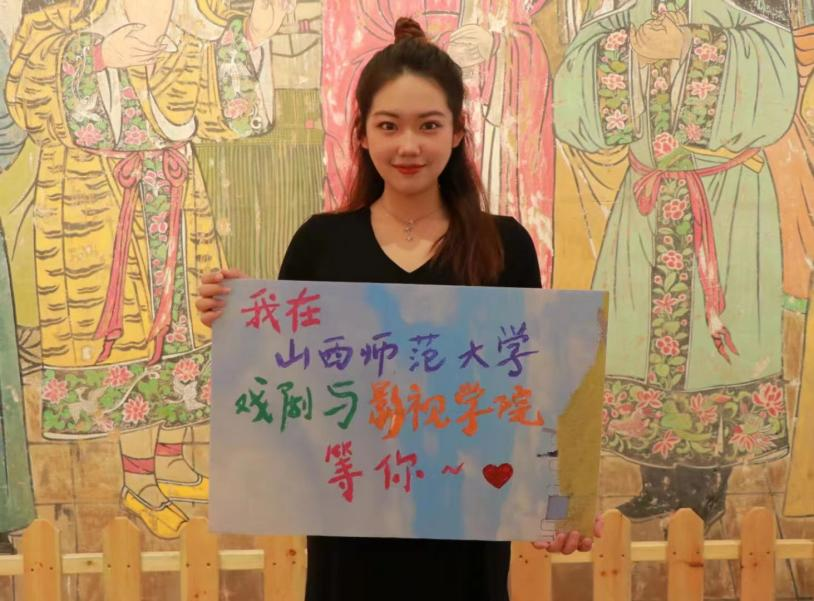 我在
山西师范大学
戏剧与影视学院
等你~